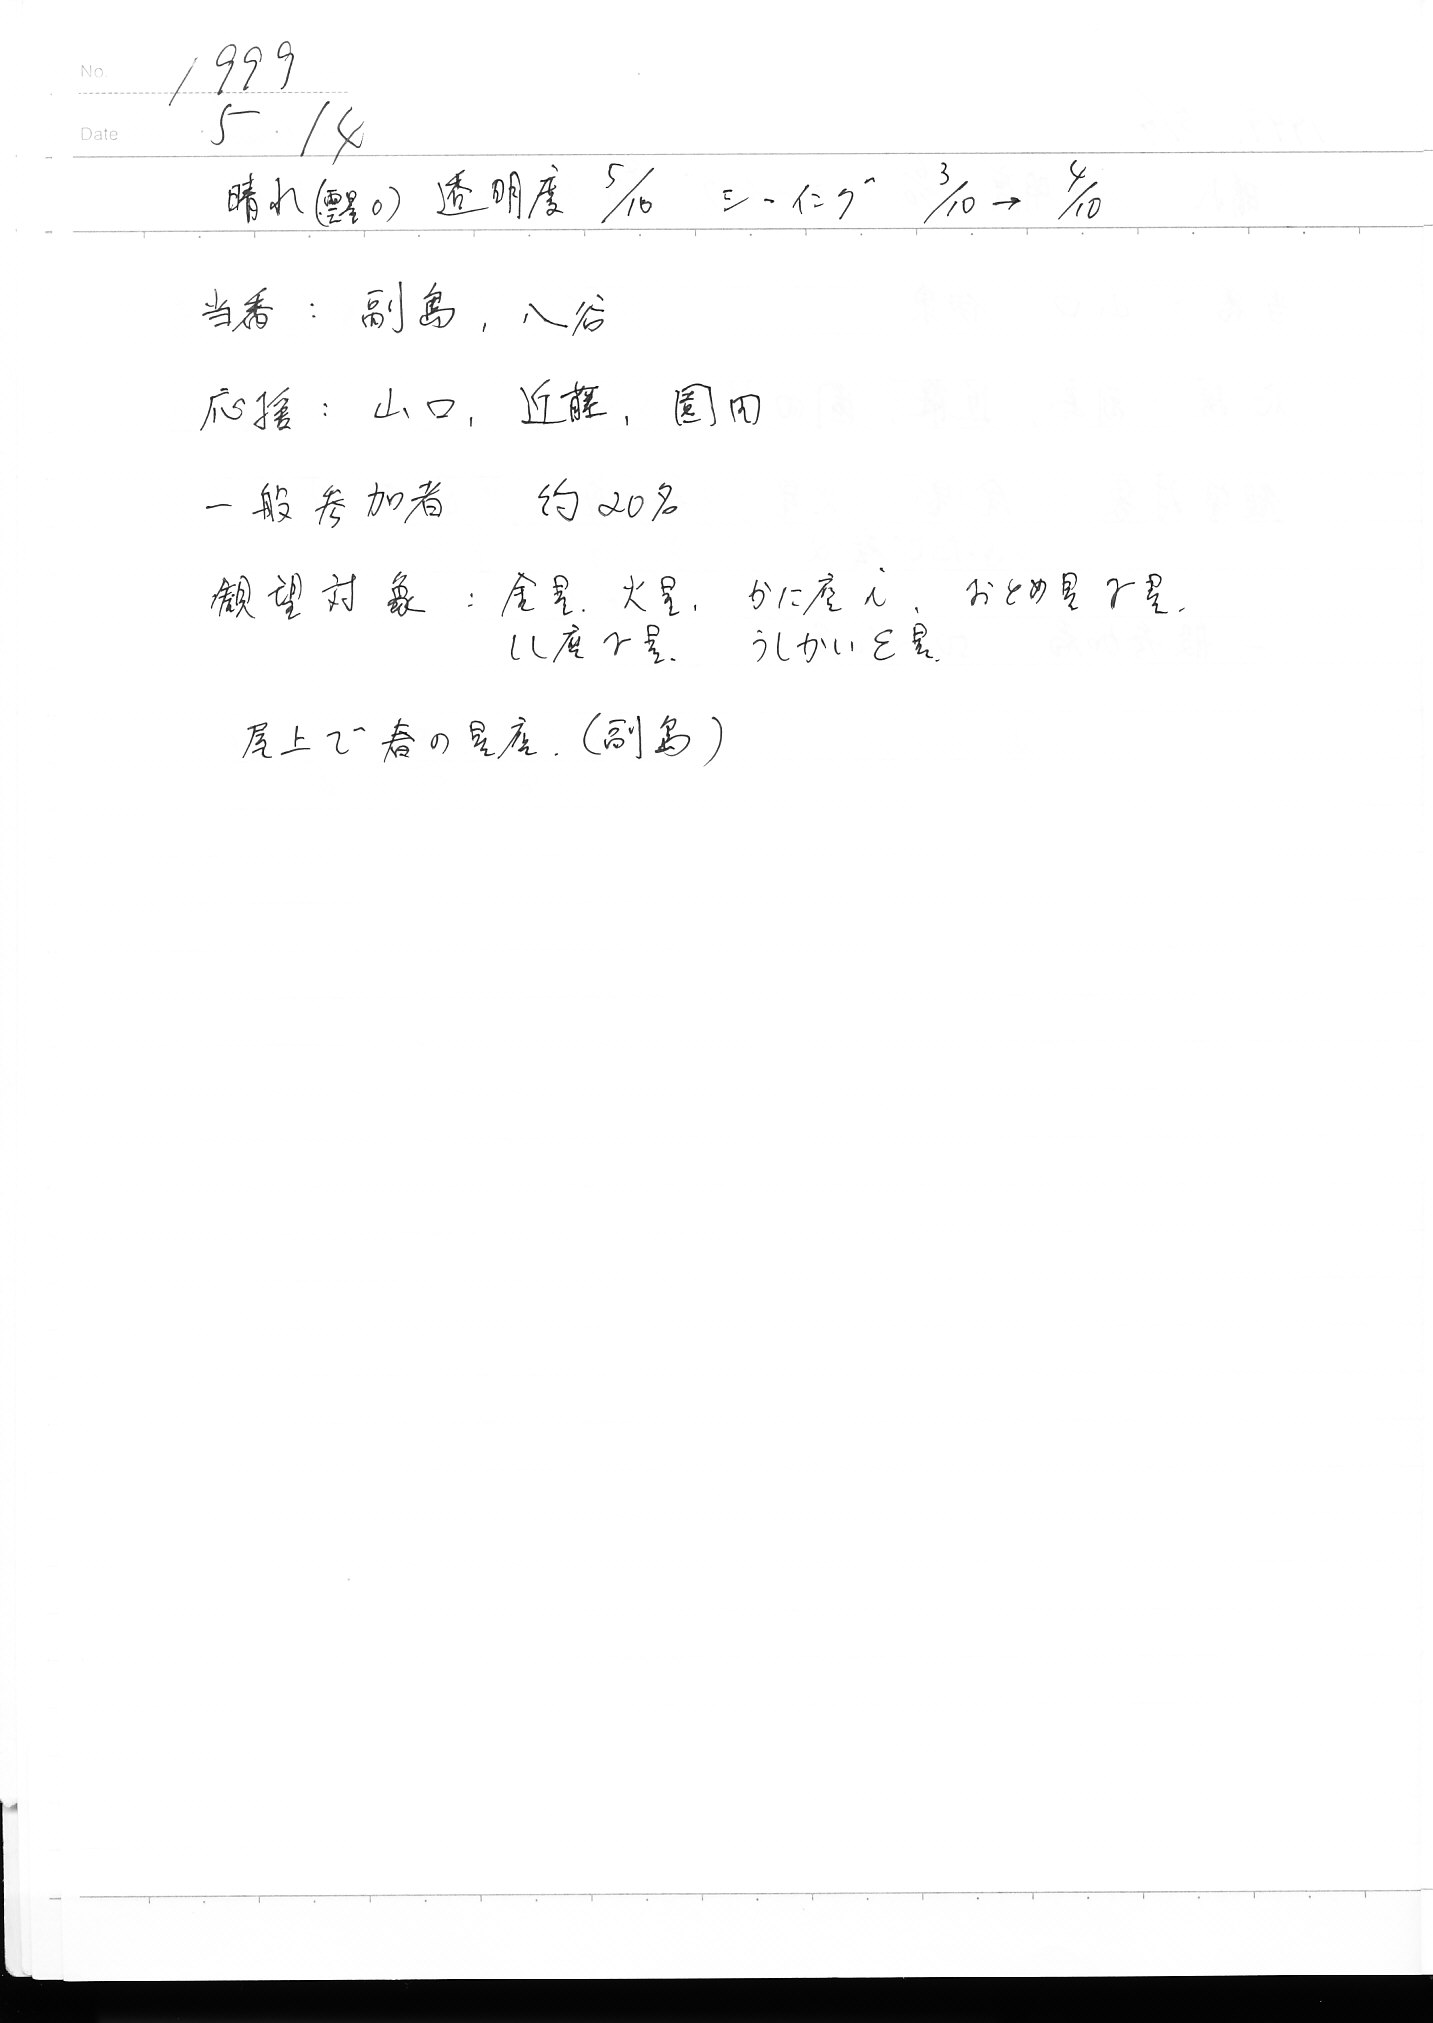 No. 1999
Date 5 ・ 14
晴れ(雲量0) 透明度 5/10 シーイング 3/10 → 4/10
当番: 副島, 八谷
応援: 山口, 近藤, 園田
一般参加者 約20名
観望対象: 金星. 火星. かに座 i. おとめ星γ星.
しし座γ星. うしかいε星.
屋上で春の星座. (副島)